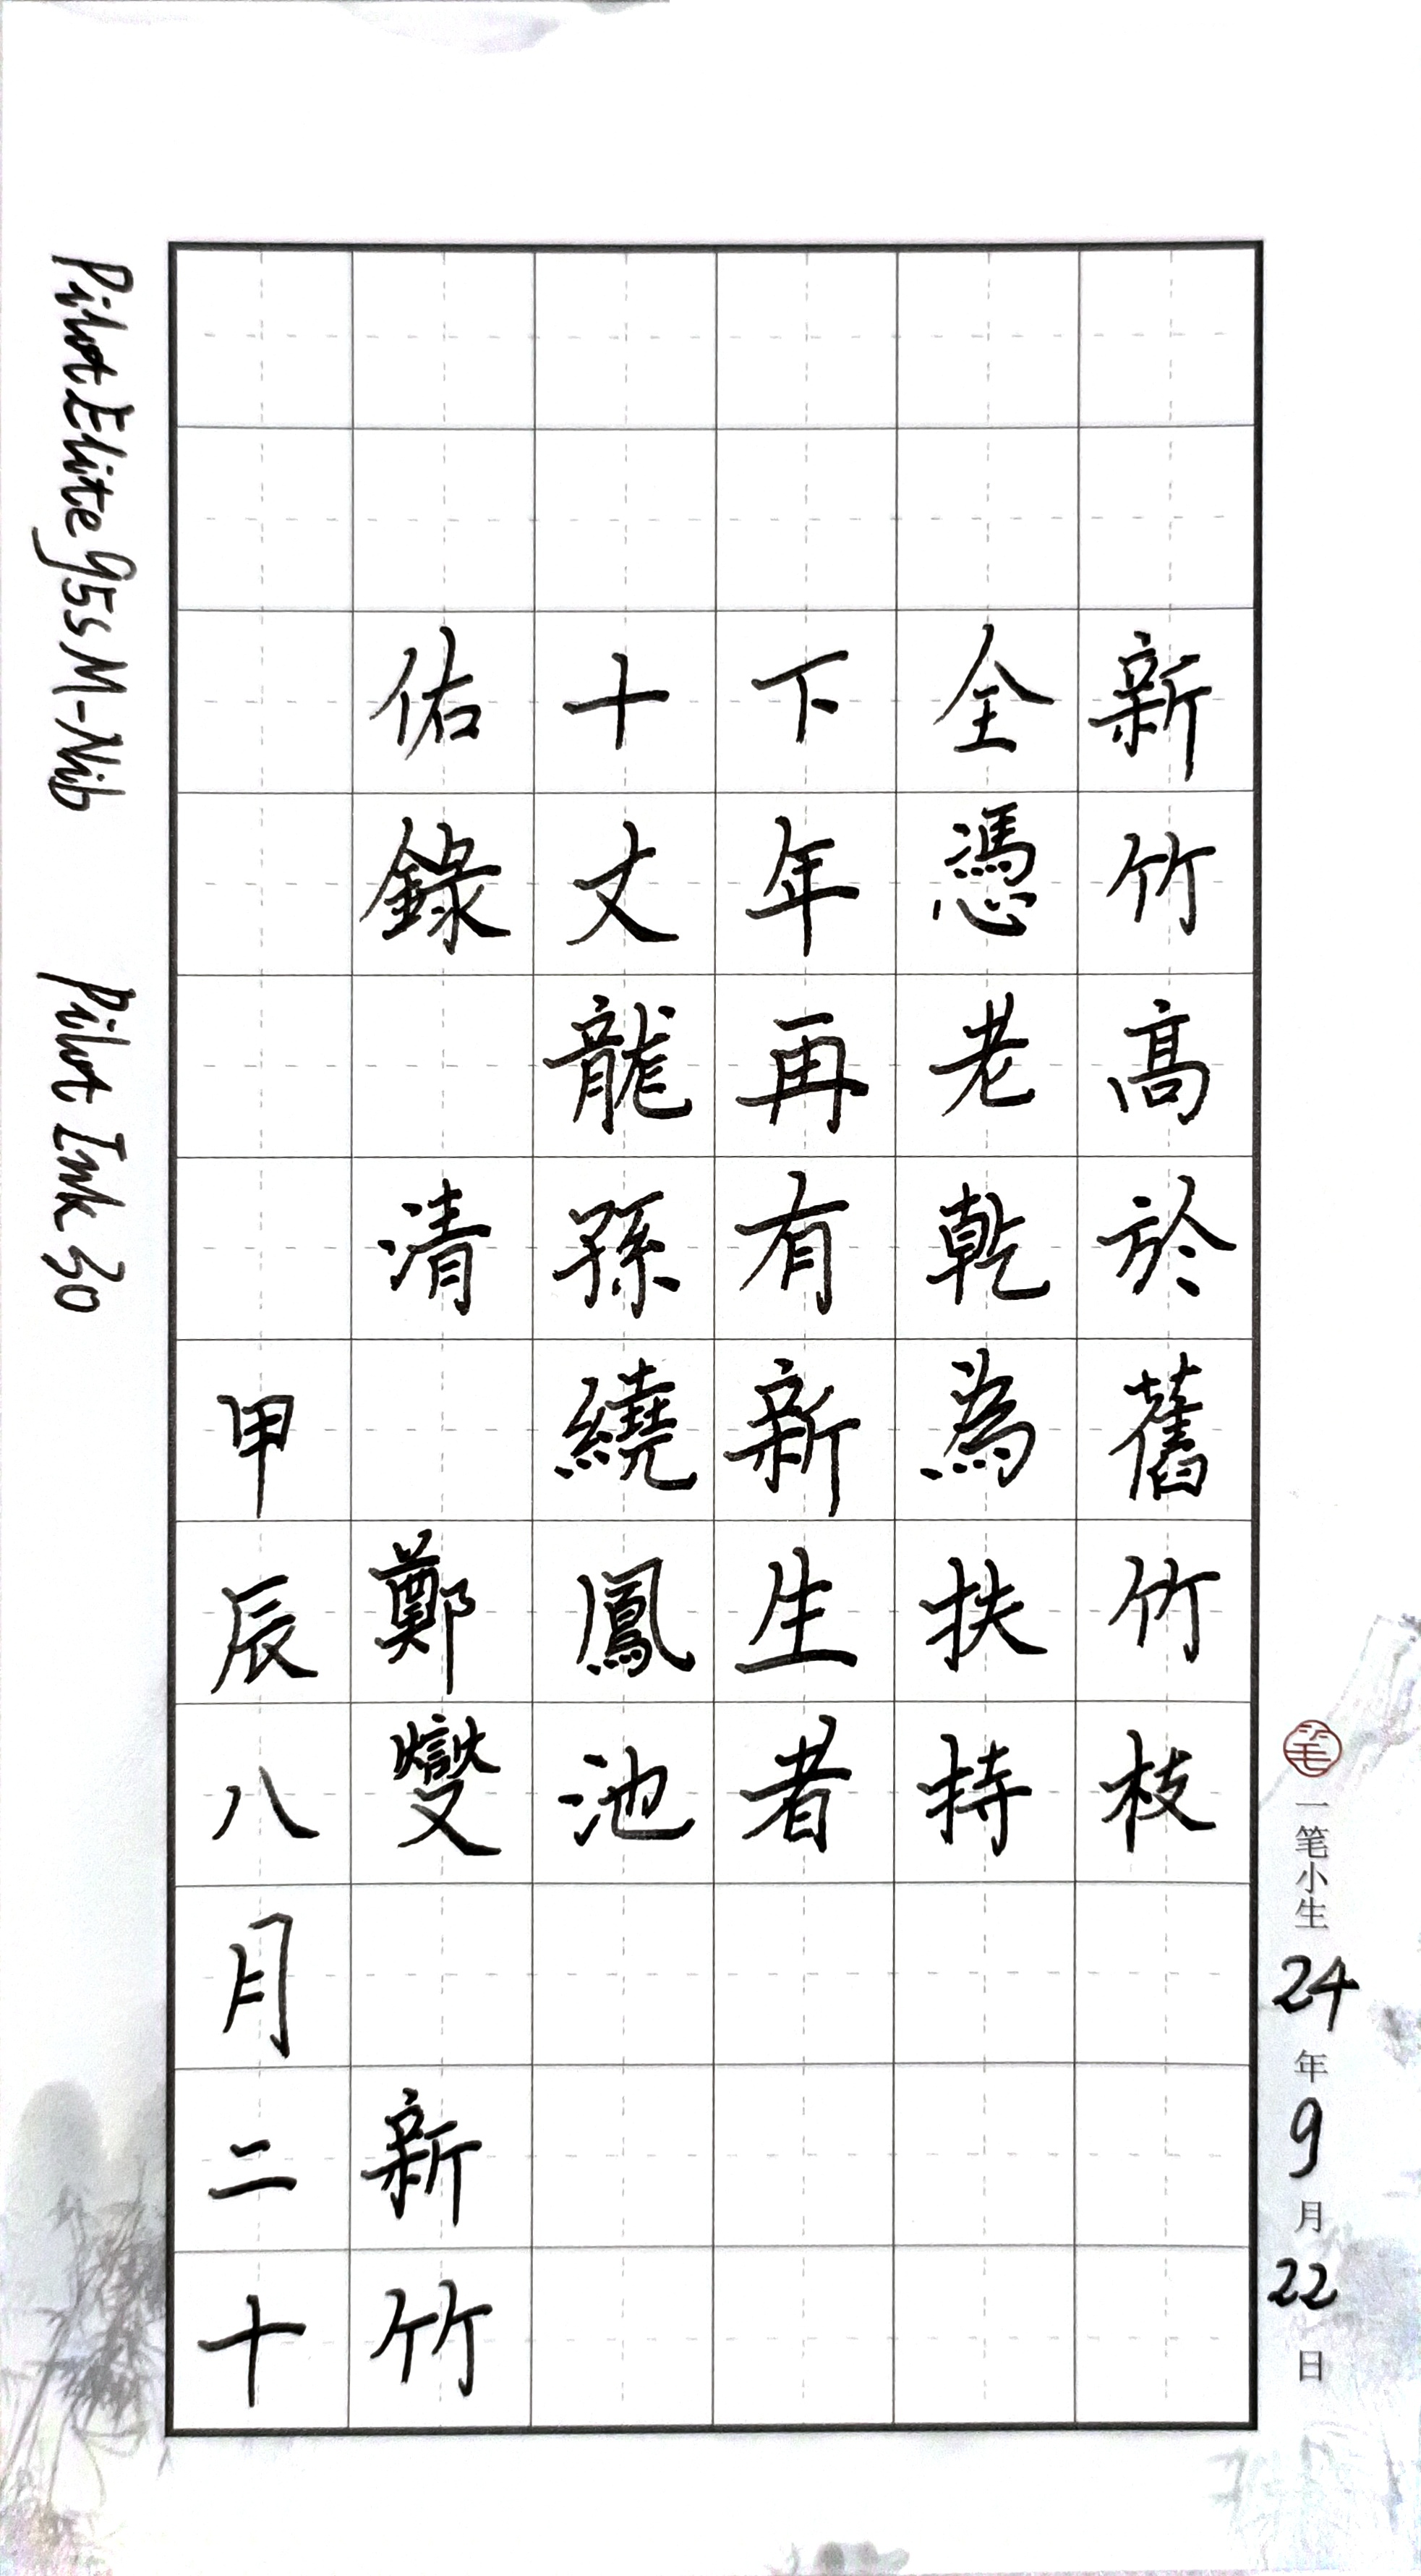 新竹高於舊竹枝
全憑老乾為扶持
下年再有新生者
十丈龍孫繞鳳池
佑錄 清 鄭燮 新竹
甲辰八月二十
笔
一笔小生 24年9月22日
Pilot Elite 95s M-Nib Pilot Ink 30